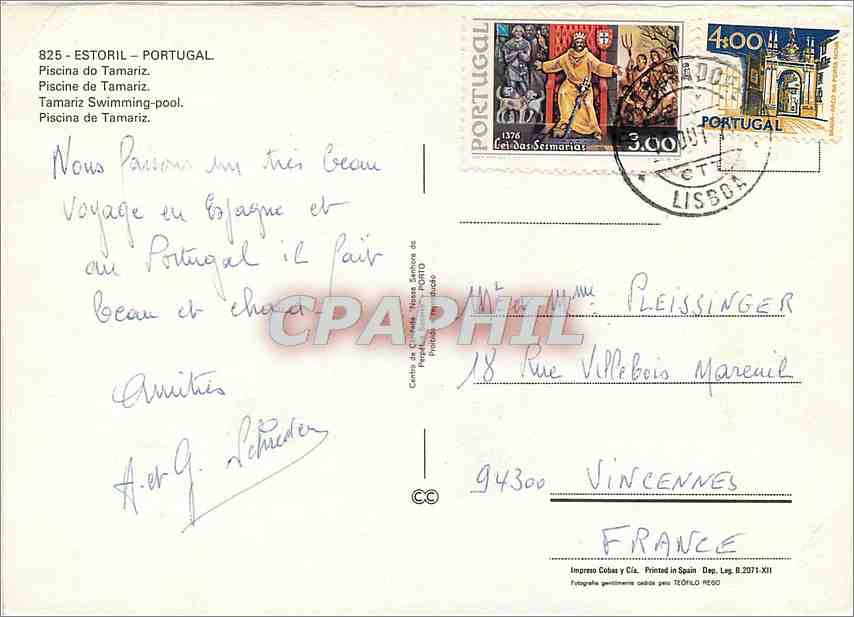 825 - ESTORIL – PORTUGAL.
Piscina do Tamariz.
Piscine de Tamariz.
Tamariz Swimming-pool.
Piscina de Tamariz.
Nous faisons un très beau
voyage en Espagne et
au Portugal il fait
beau et chaud.
Amitiés
A. et G.
PORTUGAL
1376
Lei das Sesmarias
3.00
4$00
BRAGA-ARCO DA PORTA NOVA
PORTUGAL
OUT
CTT
LISBOA
Centro de Caridade "Nossa Senhora do
Perpétuo Socorro" - PORTO
Proibida a reprodução
CPAPHIL
Mr et Mme PLEISSINGER
18 Rue Villebois Mareuil
94300 VINCENNES
FRANCE
CC
Impreso Cobas y Cía. Printed in Spain Dep. Leg. B.2071-XII
Fotografia gentilmente cedida pelo TEÓFILO REGO